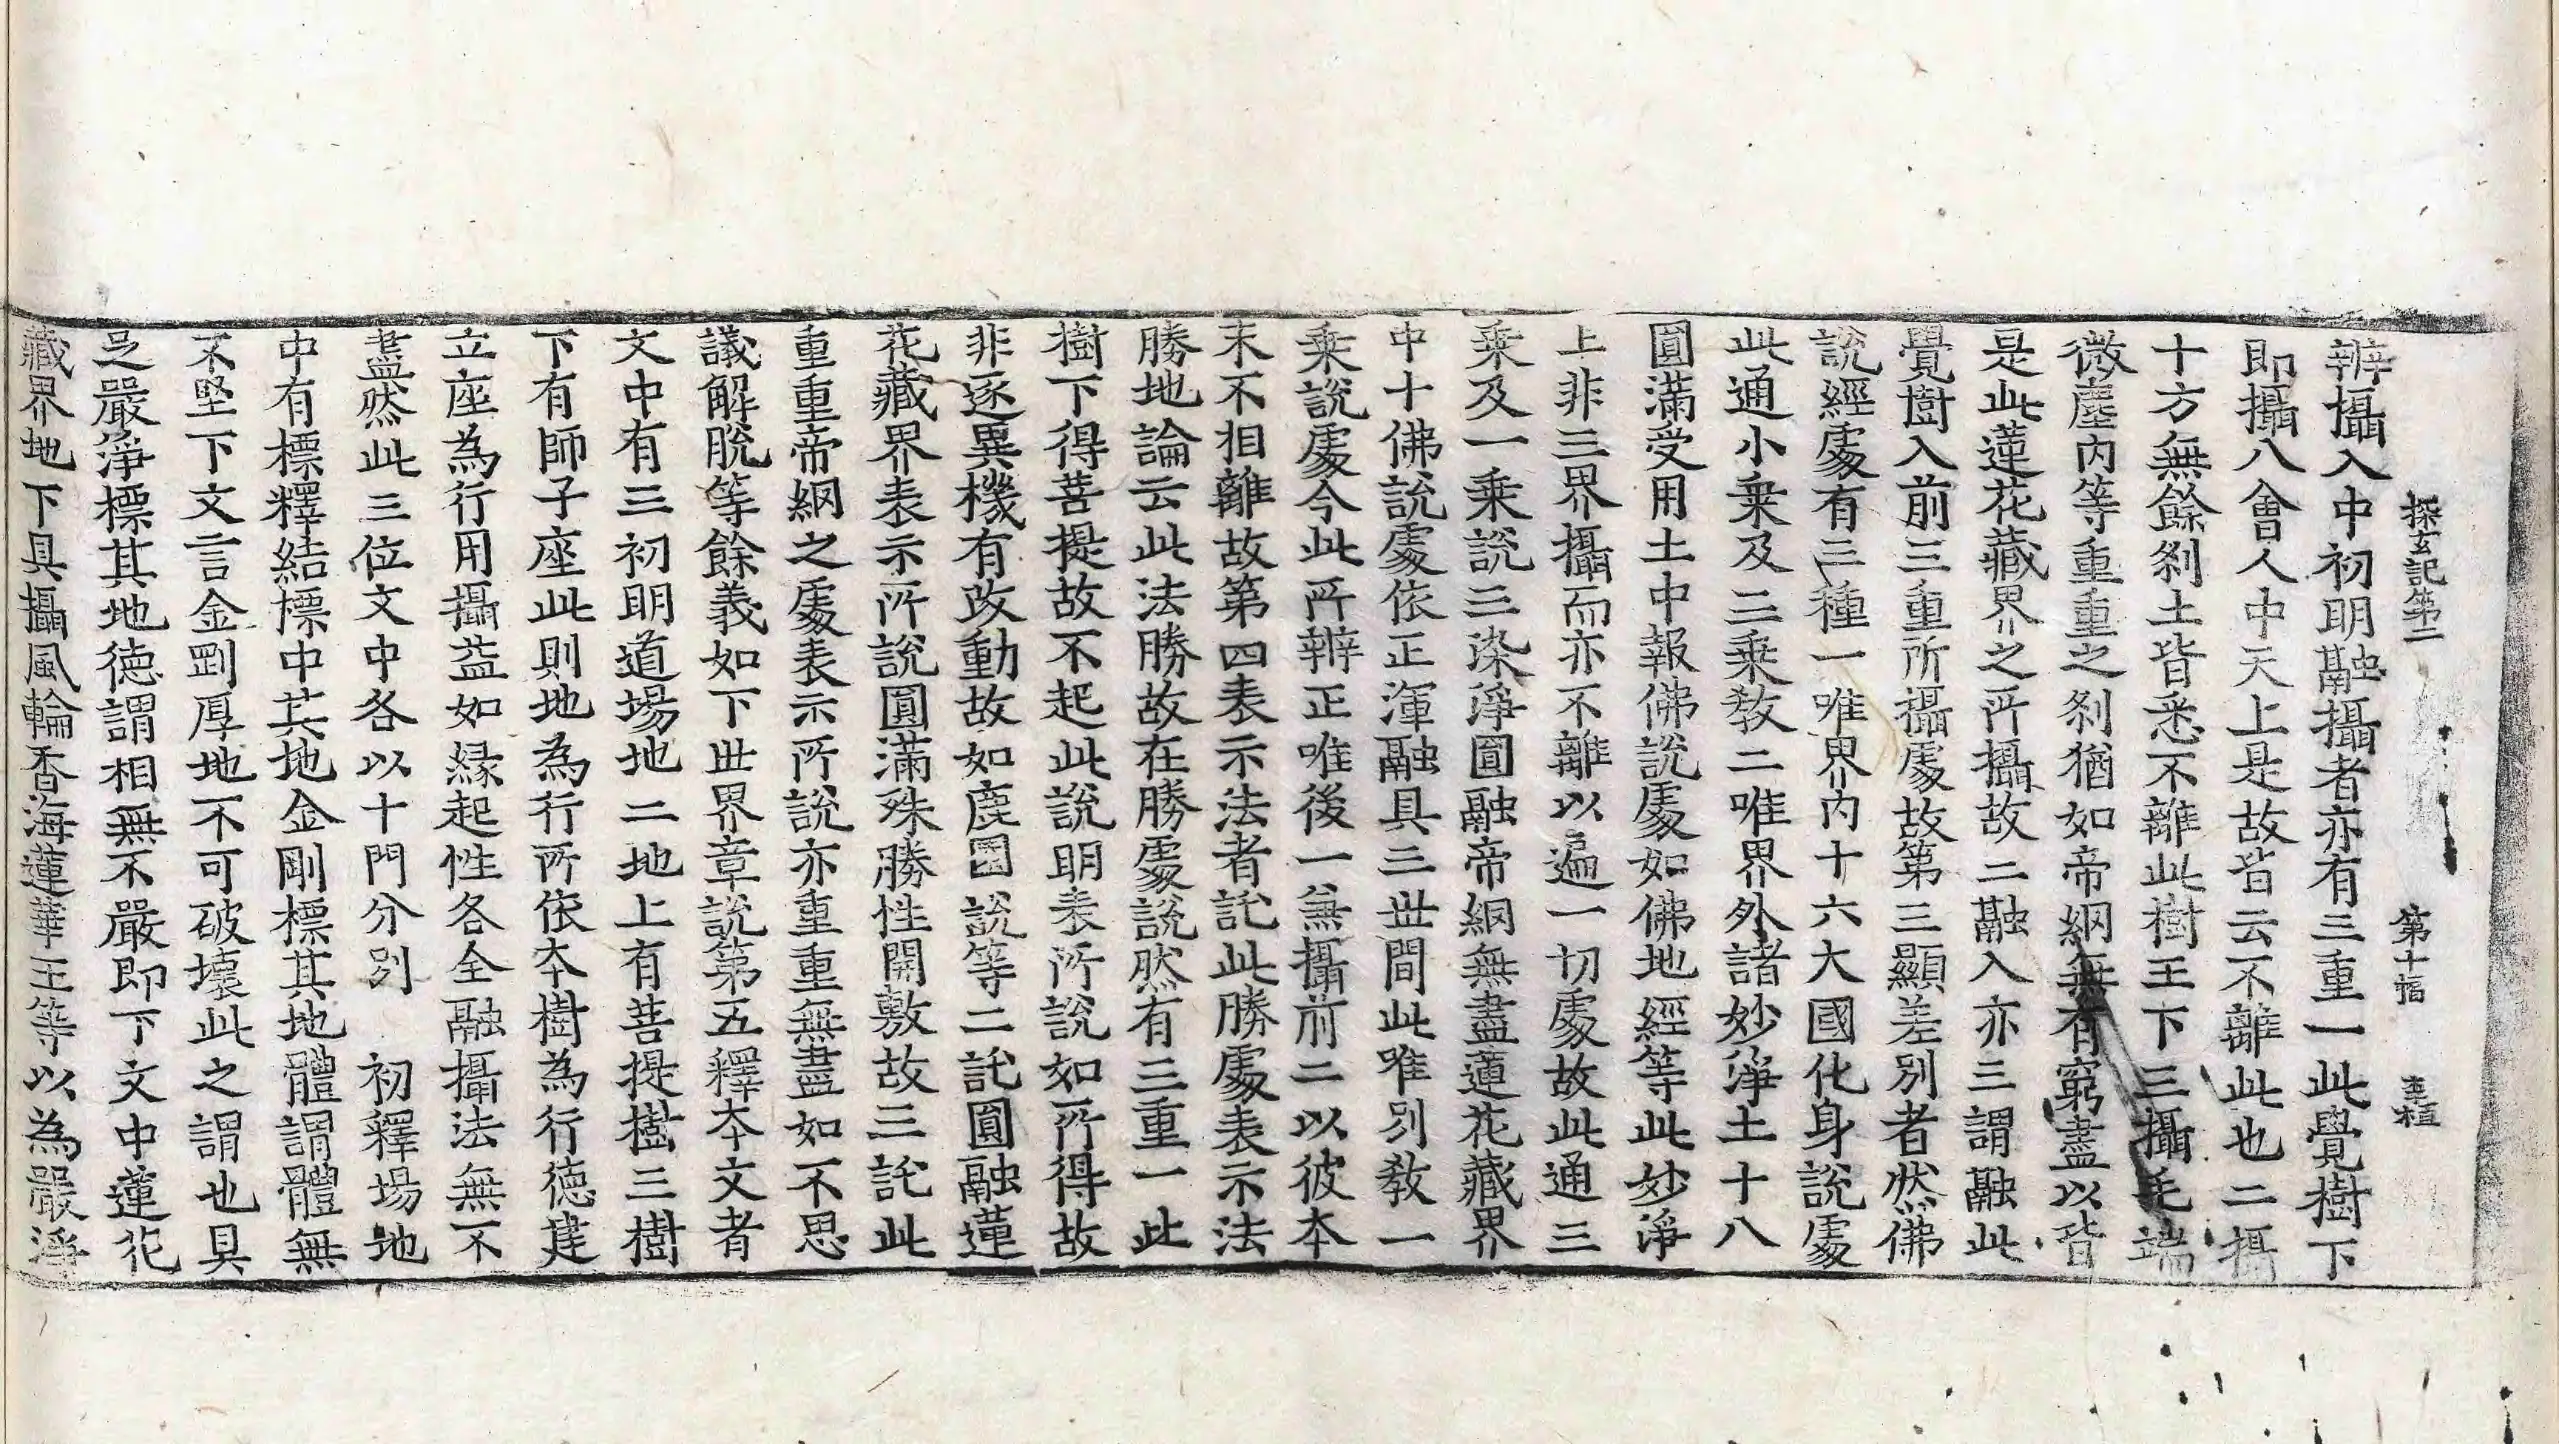 探玄記第二　第十幅
辦攝入中初明融攝者亦有三重一此覺樹下
即攝八會人中天上是故皆云不離此也二攝
十方無餘刹土皆悉不離此樹王下三攝毛端
微塵内等重重之刹猶如帝網無有窮盡以皆
是此蓮花藏界之所攝故二融入亦三謂融此
覺樹入前三重所攝處故第三顯差別者然佛
說經處有三種一唯界内十六大國化身說處
此通小乗及三乗教二唯界外諸妙淨土十八
圓滿受用土中報佛說處如佛地經等此妙淨
上非三界攝而亦不離以遍一切處故此通三
乗及一乗說三染淨圓融帝網無盡蓮花藏界
中十佛說處依正渾融具三世間此唯別教一
乗說處今此所辦正唯後一無攝前二以彼本
末不相離故第四表示法者託此勝處表示法
勝地論云此法勝故在勝處說然有三重一此
樹下得菩提故不起此說明表所說如所得故
非逐異機有改動故如塵圓說等二託圓融蓮
花藏界表示所說圓滿殊勝性開敷故三託此
重重帝網之處表示所說亦重重無盡如不思
議解脫等餘義如下世界章說第五釋夲文者
文中有三初明道場地二地上有菩提樹三樹
下有師子座此則地為行所依夲樹為行德建
立座為行用攝益如緣起性各全融攝法無不
盡然此三位文中各以十門分別　初釋場地
中有標釋結標中其地金剛標其地體謂體無
不堅下文言金剛厚地不可破壞此之謂也具
足嚴淨標其地德謂相無不嚴即下文中蓮花
藏界地下具攝風輪香海蓮華王等以為嚴淨